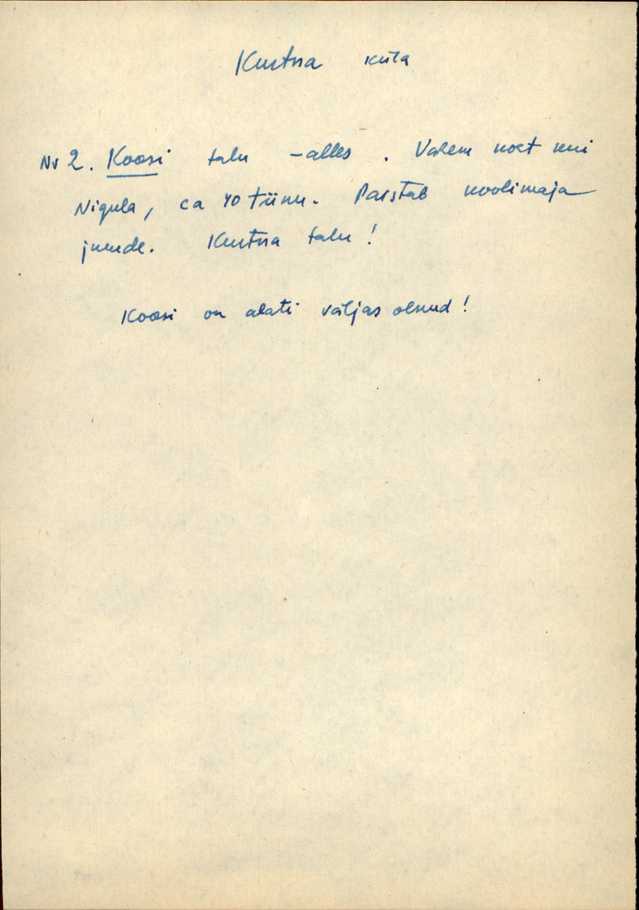 Kurtna küla
Nr 2. Koosi talu - alles. Vahem koht kui
Nigula, ca 40 tiinu. Paistab koolimaja
juurde. Kurtna talu!
Koosi on alati väljas olnud!